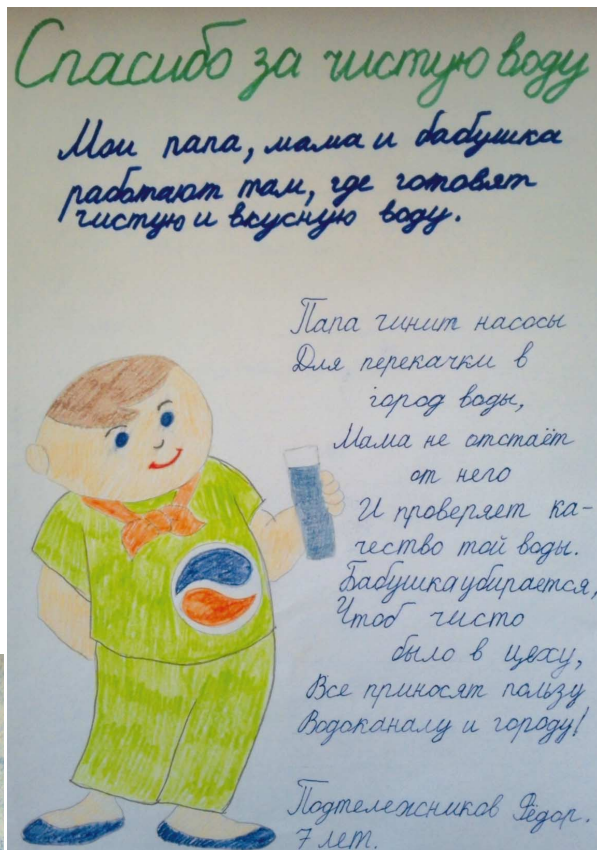 Спасибо за чистую воду
Мои папа, мама и бабушка
работают там, где готовят
чистую и вкусную воду.
Папа чинит насосы
Для перекачки в
город воды,
Мама не отстаёт
от него
И проверяет ка-
чество той воды.
Бабушка убирается,
Чтоб чисто
было в цеху,
Все приносят пользу
Водоканалу и городу!
Подтележников Фёдор.
7 лет.